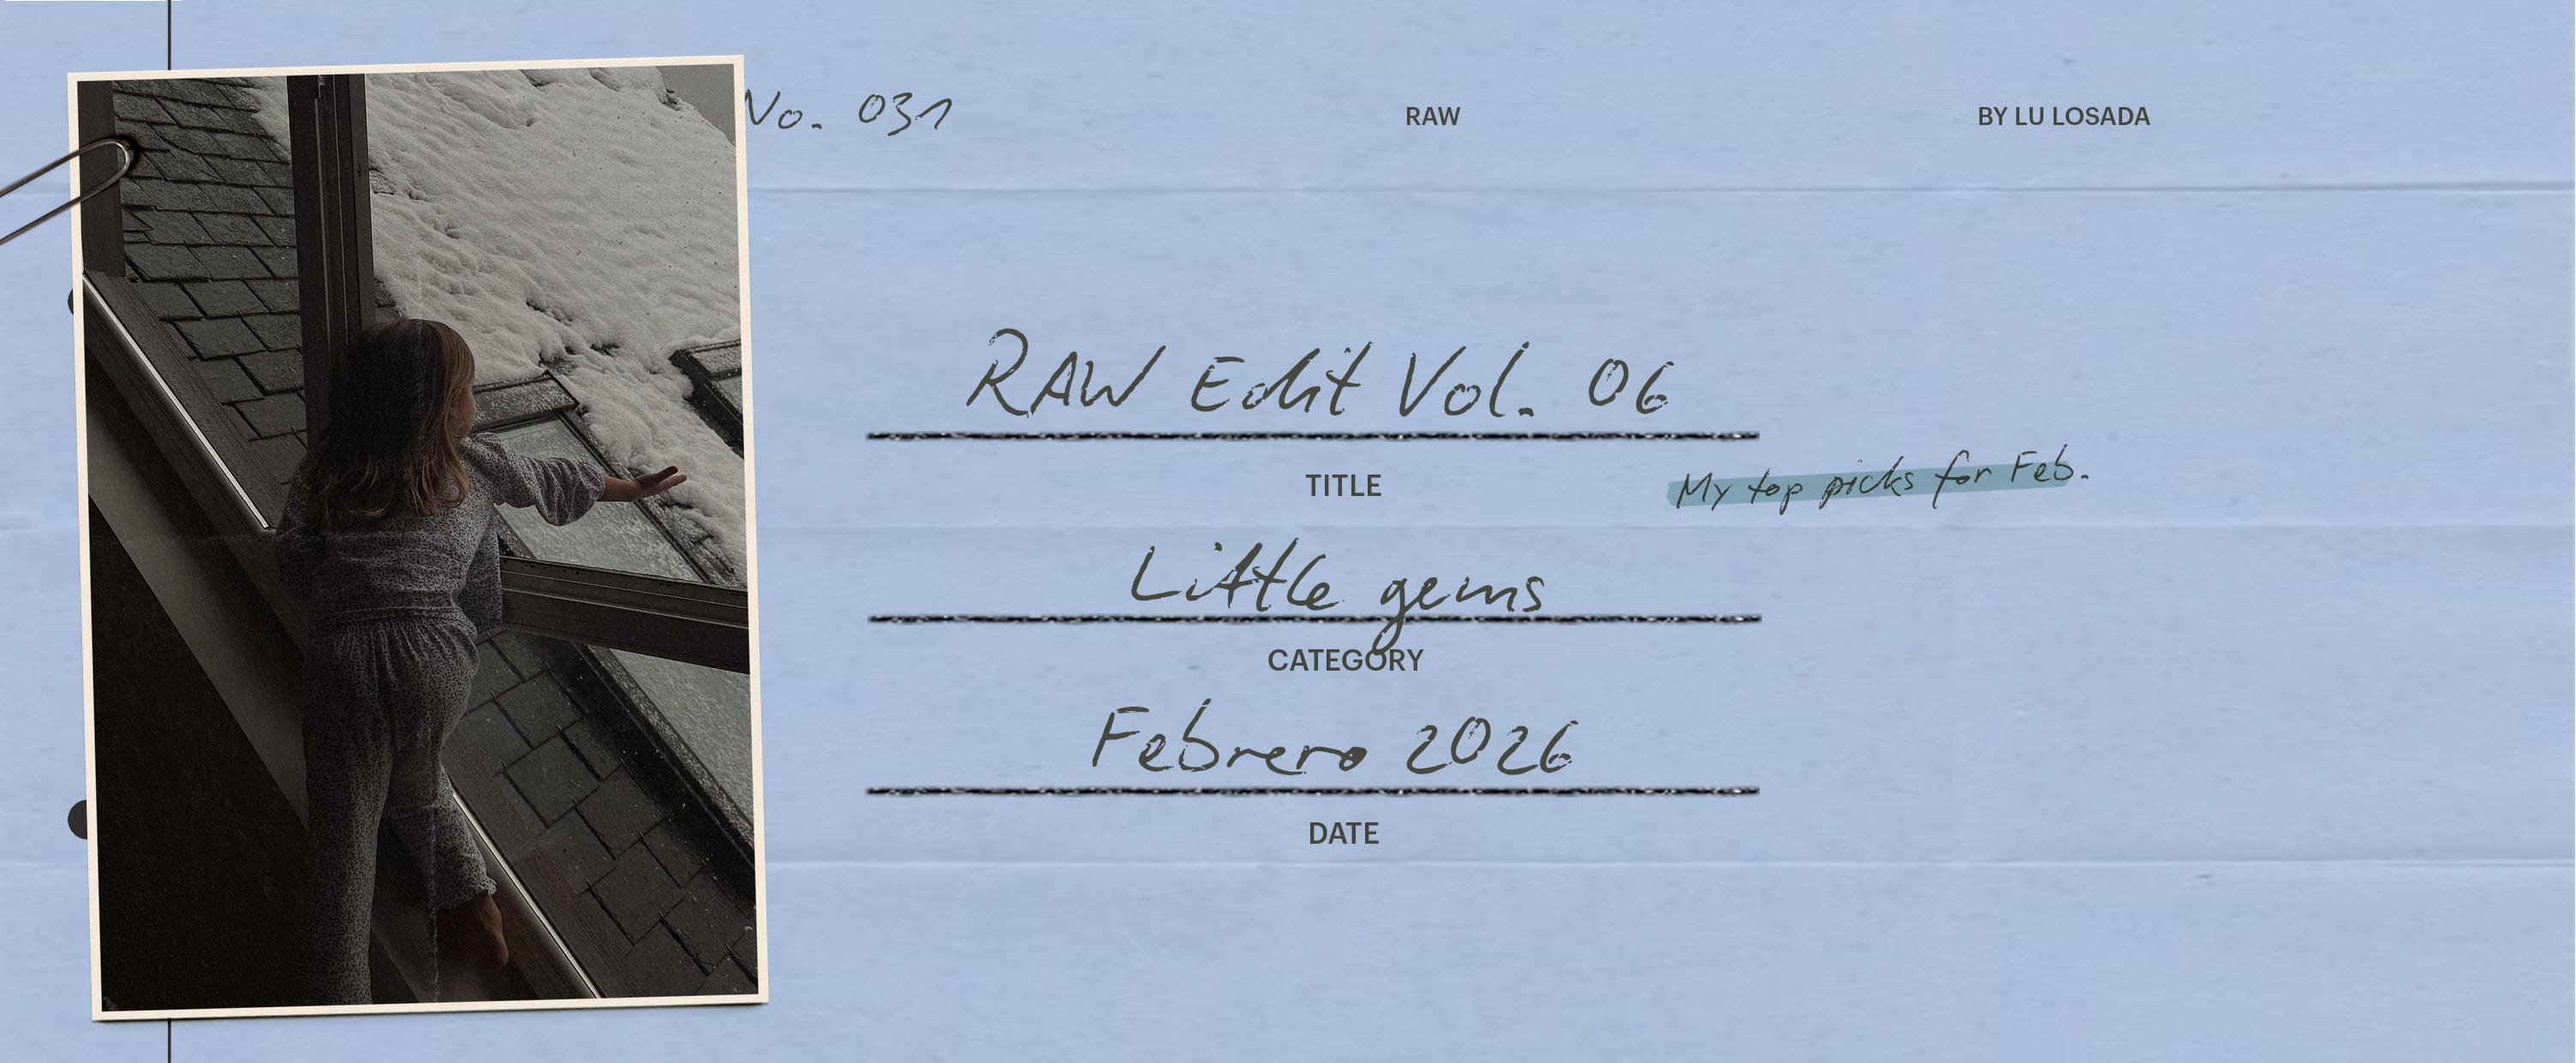 No. 031
RAW
BY LU LOSADA
RAW Edit Vol. 06
TITLE
My top picks for Feb.
Little gems
CATEGORY
Febrero 2026
DATE